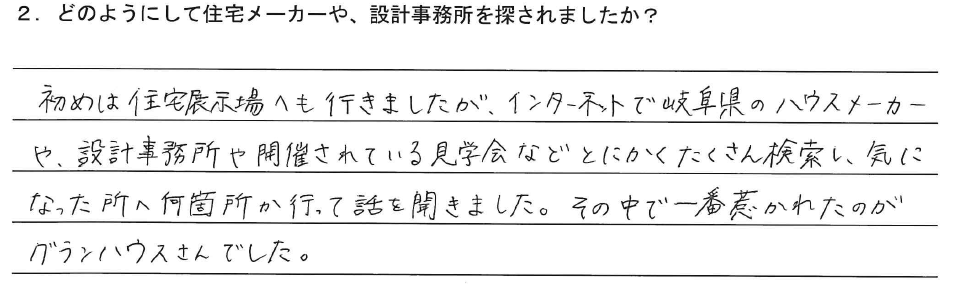 2．どのようにして住宅メーカーや、設計事務所を探されましたか？
初めは住宅展示場へも行きましたが、インターネットで岐阜県のハウスメーカー
や、設計事務所や開催されている見学会などとにかくたくさん検索し、気に
なった所へ何箇所か行って話を聞きました。その中で一番惹かれたのが
グランハウスさんでした。